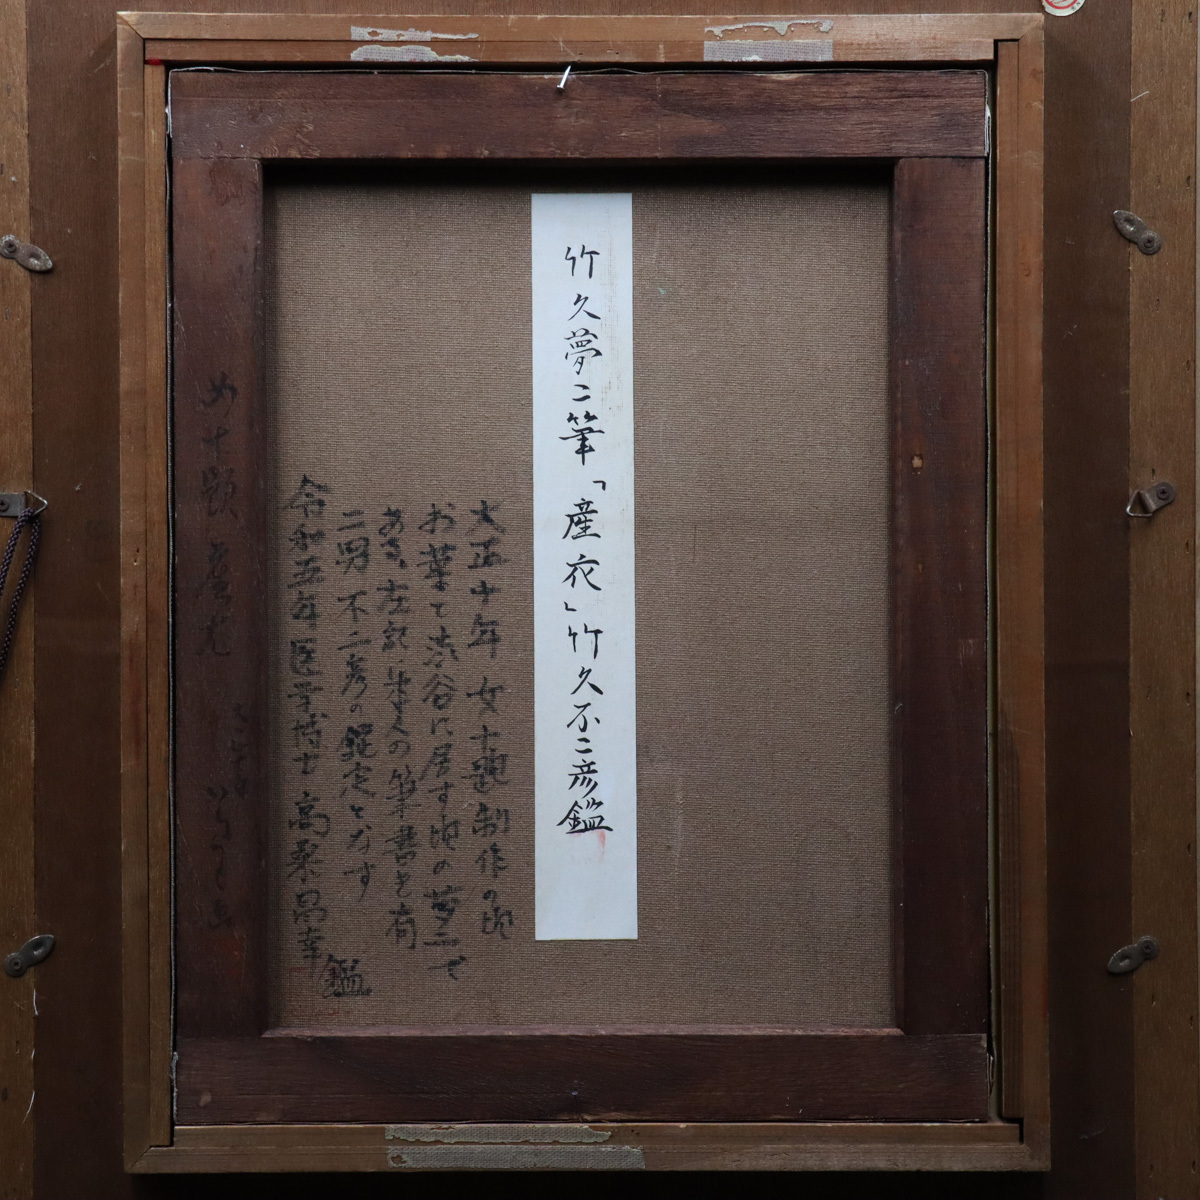 竹久夢二筆「産衣」竹久不二彦鑑
大正中年 女十題制作の頃
お葉て渋谷に居す頃の夢二で
あさ、左記本人の筆書を有
二男不二彦の鑑定となす
令和五年医学博士 高桑昌幸
鑑
女十題 産衣